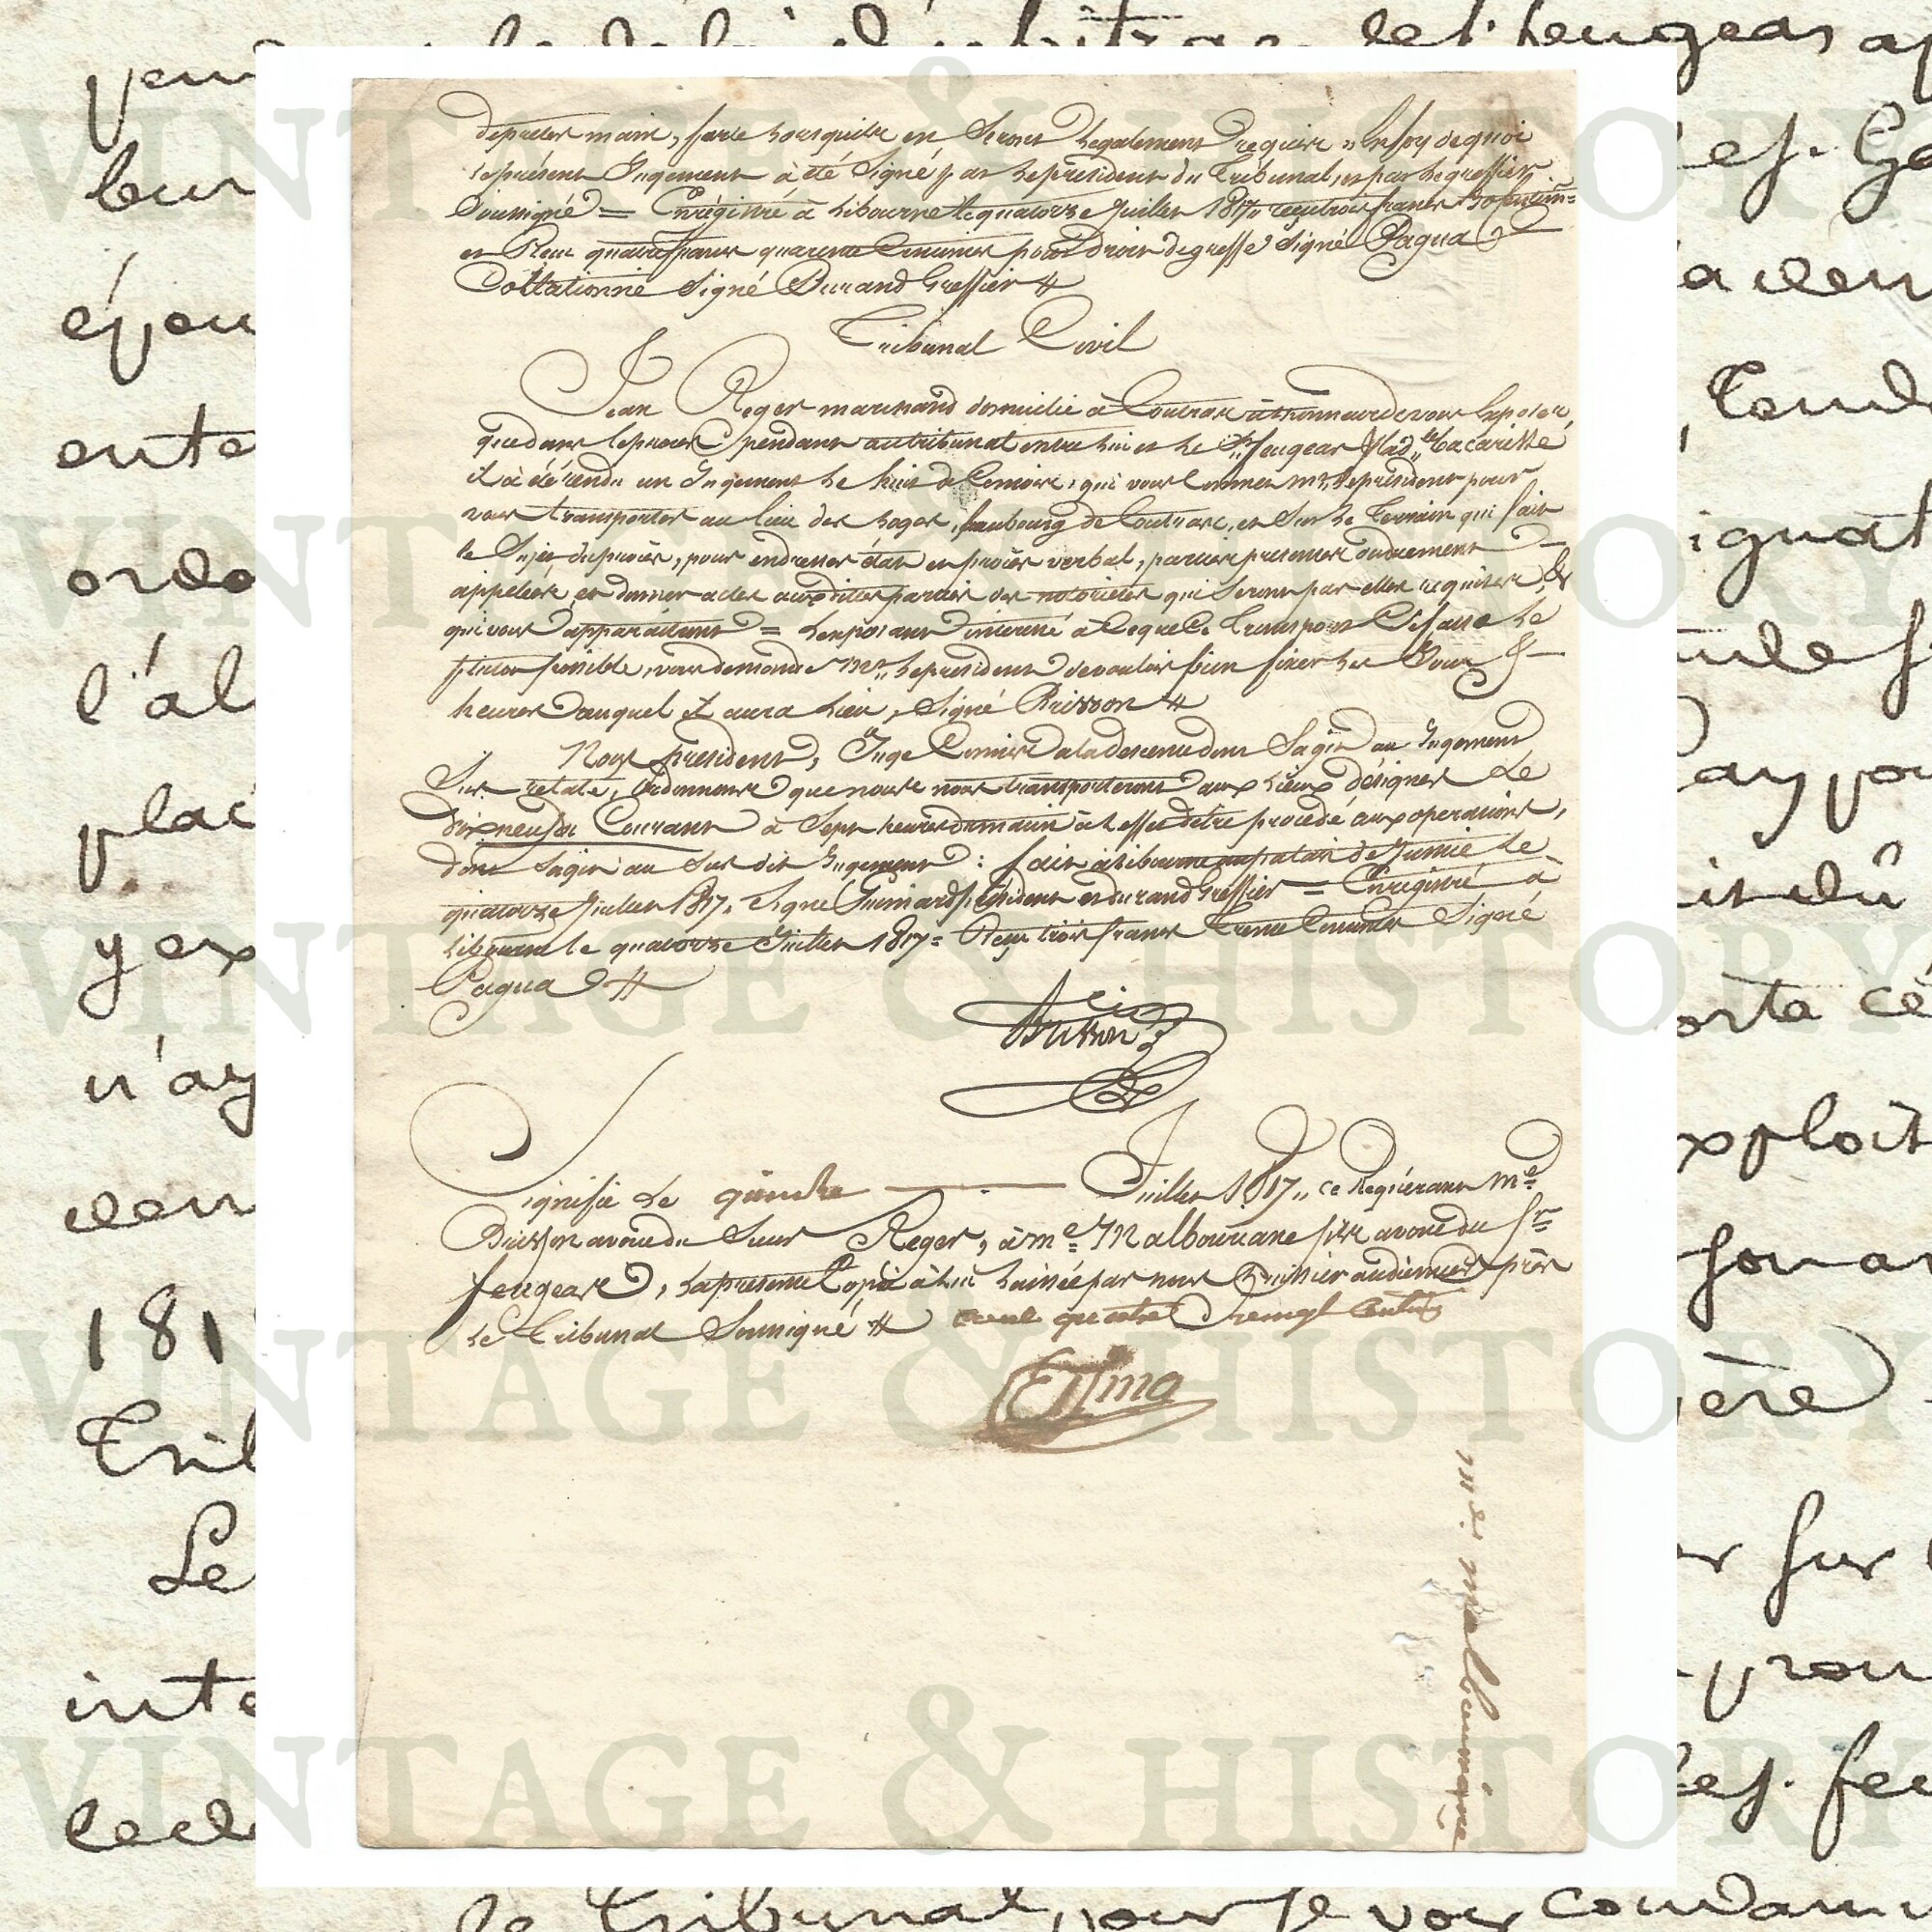 de prêter main forte lorsquils en seront légalement requis, en foy de quoi
le présent Jugement à été Signé par le président du Tribunal, et par le greffier
Soussigné = Enrégistré à Libourne le quatorze Juillet 1817, reçu trois francs
et Plus quatre francs quarante Centimes pour droit de greffe Signé Pagua
Collationné Signé Durand Greffier
Tribunal Civil
Jean Reger marchand domicilié à Coutras à l'honneur de vous Exposer,
que dans le procès pendant au tribunal entre lui et le Sr. feugeas
il à été rendu un Jugement le huit de Ce mois, qui vous Commet mr. le président pour
vous transporter au lieu des hoges, faubourg de Coutras, et Sur le Terrain qui fait
le Sujet du procès, pour en dresser état et procès verbal, parties presentes ou duement
appelées, et donner actes aux dittes parties des notoriétés qui Seront par elles requises, &
qui vous apparaitront = L'exposant interessé à Ce que Ce transport Se fasse le
plutot possible, vous demande Mr. le président de vouloir bien fixer les Jour &
heures auquel il aura lieu, Signé Brisson
Nous président, Juge Commis à la descente dont S'agit au Jugement
Sus relaté, Ordonnons que nous nous transporterons aux Lieux désignés Le
dix neuf du Courant à Sept heures du matin à l'effet d'être procédé aux operations,
dont S'agit au Sus dit Jugement : fait à Libourne au palais de Justice le
quatorze Juillet 1817. Signé président et durand Greffier = Enregistré à
Libourne le quatorze Juillet 1817 = Reçu trois francs trente Centimes Signé
Pagua
Brisson
Signifié Le quinze Juillet 1817, ce Requérant Me.
Brisson avoué du Sieur Reger, à me. Malbourane fils avoué du Sr.
feugeas, la presente Copie à lui laissée par nous huissier audiencier près
le Tribunal Soussigné
VINTAGE & HISTORY
VINTAGE & HISTORY
VINTAGE & HISTORY
VINTAGE & HISTORY
VINTAGE & HISTORY